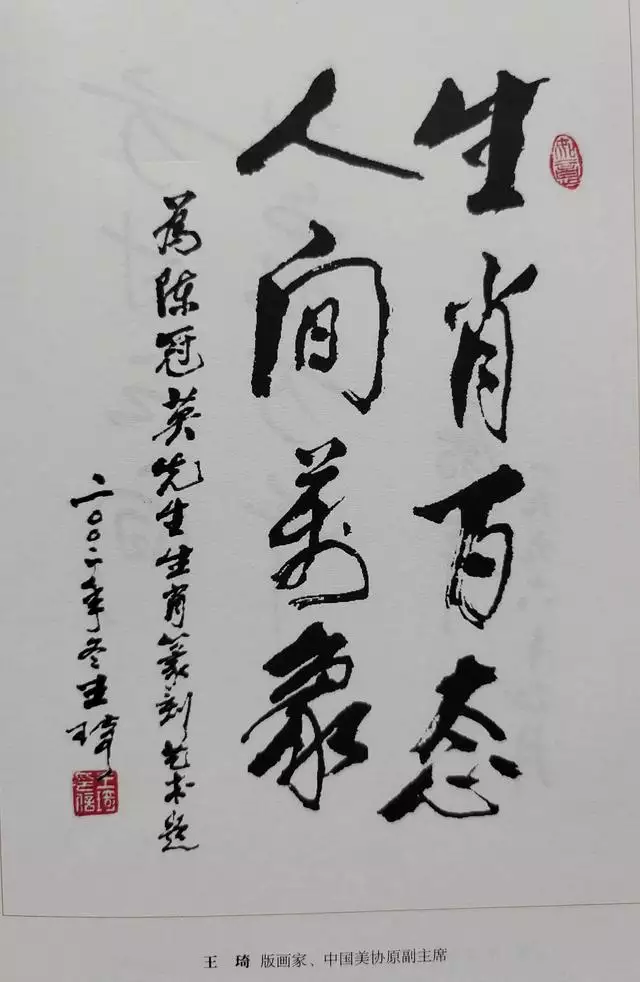 生肖百态
人间万象
为陈冠英先生生肖篆刻艺术题
二〇〇一年冬王琦
王琦 版画家、中国美协原副主席